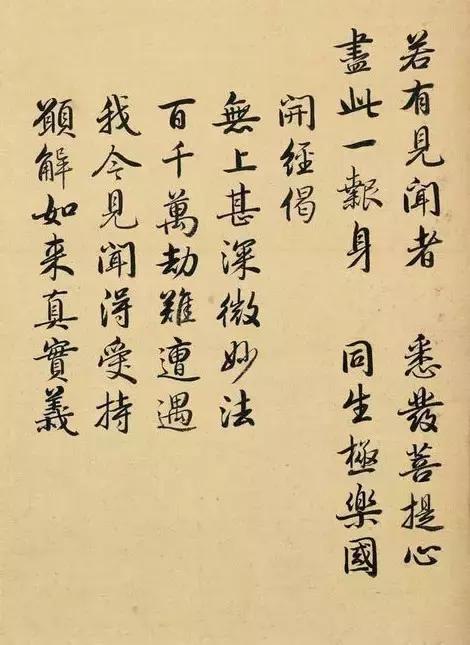 若有見聞者 悉發菩提心
盡此一報身 同生極樂國
開經偈
無上甚深微妙法
百千萬劫難遭遇
我今見聞得受持
願解如来真實義